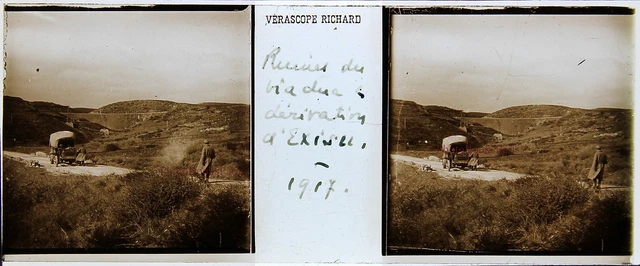 VÉRASCOPE RICHARD
Ruines du
viaduc &
dérivation
d'Exisu.
-
1917.